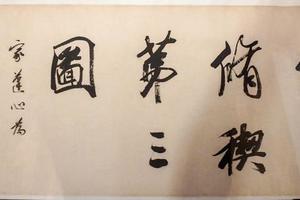 脩禊
第三
圖
家蓬心為